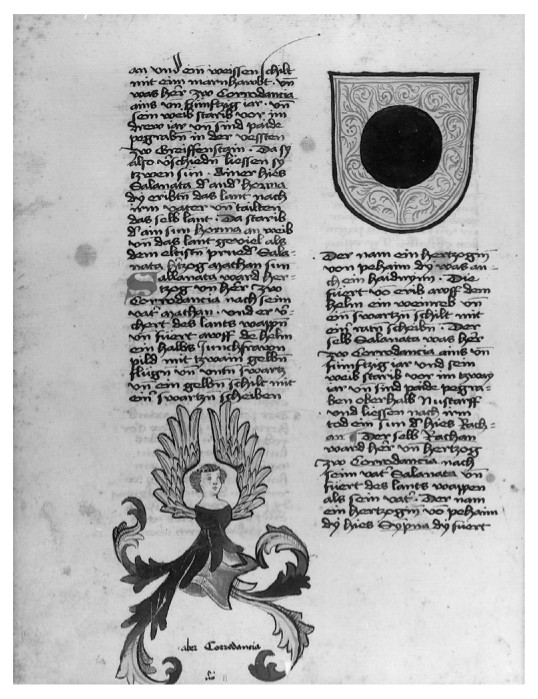 an vnd ein weissen schilt
mit eim marnhawbt · vn̄
was her̄ zw Corrodancia
ains vn̄ fumftzig iar · vn̄
sein weib starib vor im
drew iar vn̄ sind paide
pegrabn̄ in der vessten
zw Greiffenstain · Da sy
also v̄schiedn̄ liessen sy
tzwen sun · Ainer hies
Salanata d̄ and̄ horma
dy eribtn̄ das lant nach
irm vater vn̄ tailten
das selb lant · Da starib
d̄ ain sun horma an weib
vn̄ das lant geviel als
dem eltistn̄ prued̄ Sala-
nata h̄tzog Mathan sun
Sallanata ward her-
tzog vn̄ her̄ zw
Corrodancia nach seim
vat̄ Mathan · vnd er v̄-
chert des lants wappn̄
vn̄ fuert awff de helm
ein halbs Junchfrawn
pild mit tzwain gelbn̄
flugn̄ vn̄ vntn̄ swartz
vn̄ ein gelbn̄ schilt mit
ein̄ swartzn̄ scheiben
aber Corrodancia
Der nam ein hertzogin̄
von pehaim dy was an-
ch ein haidnyn̄ · Die
fuert vo erib awff dem
helm ein weinreb vn̄
ein swartzn̄ schilt mit
ein̄ ratn̄ scheibn̄ · Der
selb Salanata was her̄
zw Corrodancia ains vn̄
fumftzig iar vnd sein
weib starib vor im tzway
iar vn̄ sind paide pegra-
ben oberhalb Nustarff
· vnd liessen nach irm
tod ein sun d̄ hies Rach-
an · Der selb Rachan
ward her̄ vn̄ hertzog
zw Corrodancia nach
seim vat̄ Salanata vn̄
fuert des lants wappen
als sein vat̄ · Der nam
ein hertzogin̄ vo pehaim
dy hies Sypna dy fuert